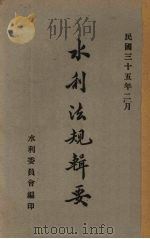 民國三十五年二月
水利法規輯要
水利委員會編印